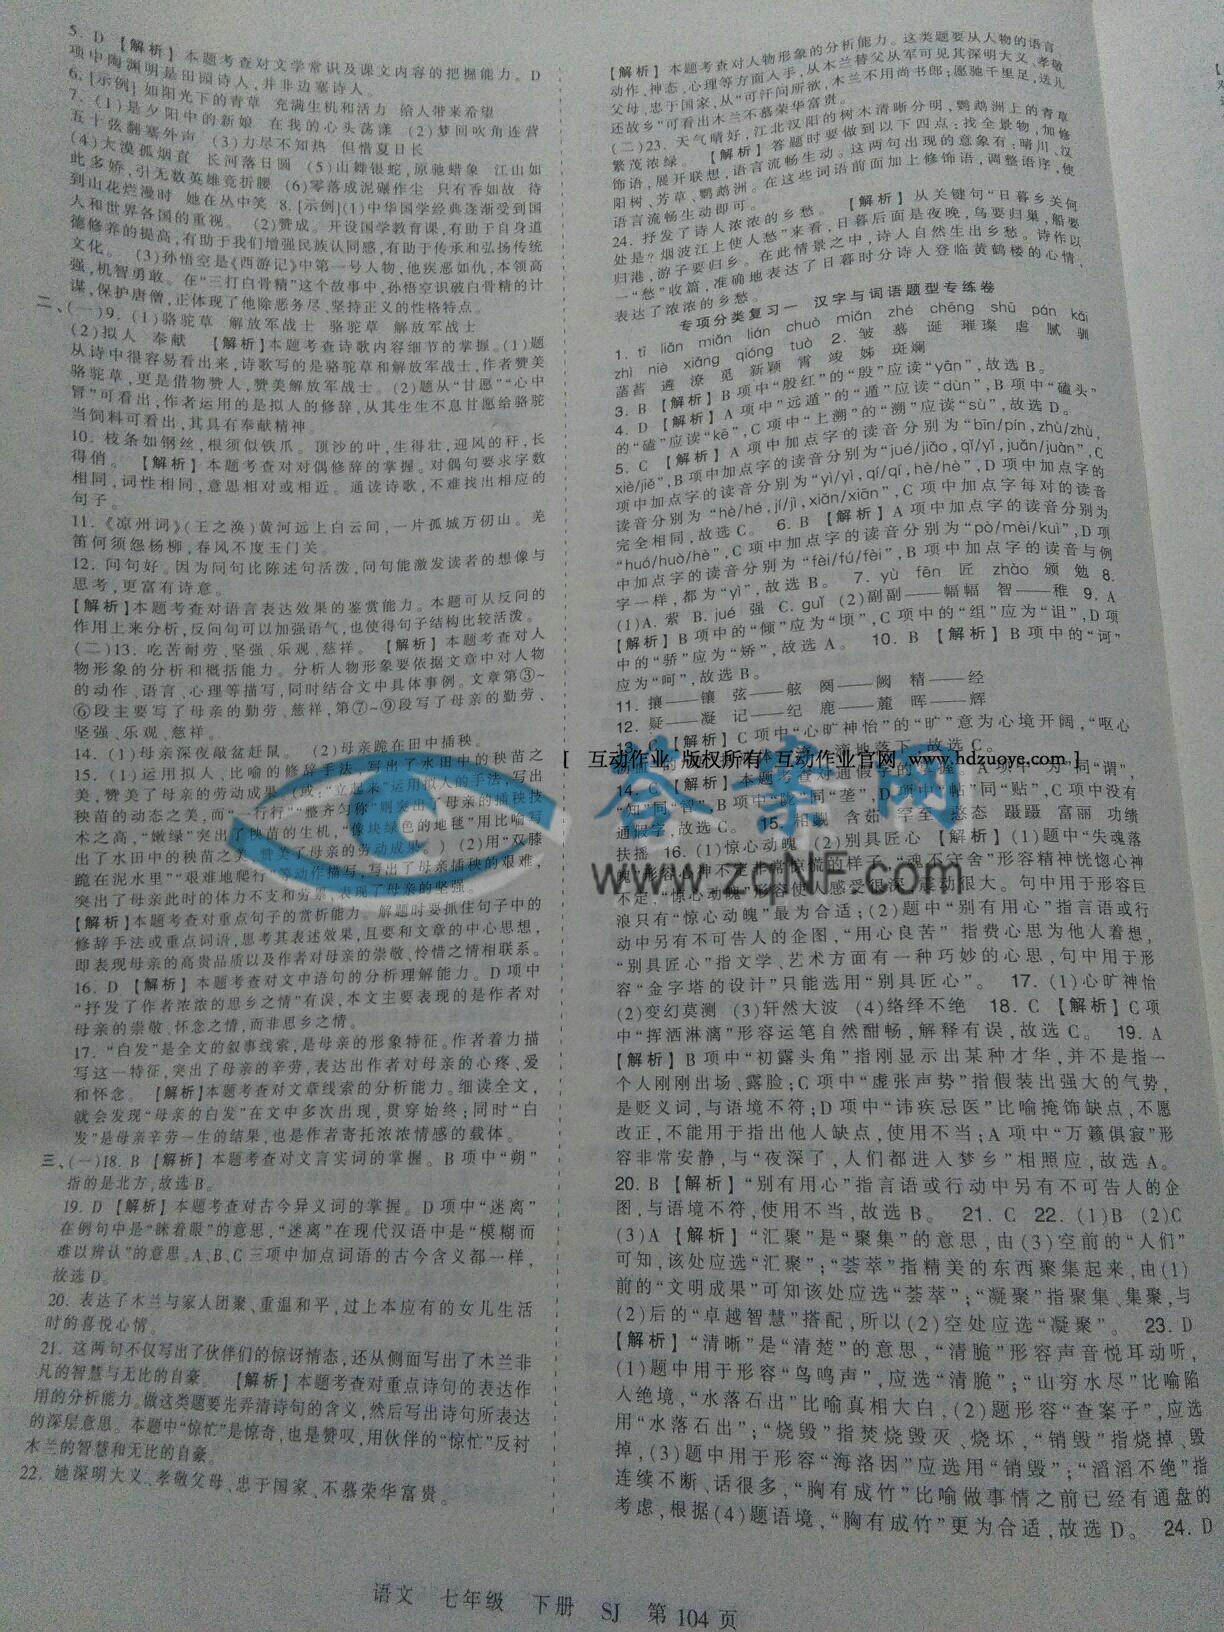 5. D 【解析】本题考查对文学常识及课文内容的把握能力。D
项中陶渊明是田园诗人,并非边塞诗人。
6. [示例] 如阳光下的青草 充满生机和活力 给人带来希望
7. (1)是夕阳中的新娘 在我的心头荡漾 (2)梦回吹角连营
五十弦翻塞外声 (3)力尽不知热 但惜夏日长
(4)大漠孤烟直 长河落日圆 (5)山舞银蛇,原驰蜡象 江山如
此多娇,引无数英雄竞折腰 (6)零落成泥碾作尘 只有香如故 待
到山花烂漫时 她在丛中笑 8. [示例](1)中华国学经典逐渐受到国
人和世界各国的重视。 (2)赞成。开设国学教育课,有助于自身道
德修养的提高,有助于我们增强民族认同感,有助于传承和弘扬传统
文化。 (3)孙悟空是《西游记》中第一号人物,他疾恶如仇,本领高
强,机智勇敢。在“三打白骨精”这个故事中,孙悟空识破白骨精的计
谋,保护唐僧,正体现了他除恶务尽、坚持正义的性格特点。
二、(一)9. (1)骆驼草 解放军战士 骆驼草 解放军战士
(2)拟人 奉献 【解析】本题考查诗歌内容细节的掌握。(1)题
从诗中很容易看出来,诗歌写的是骆驼草和解放军战士,作者赞美
骆驼草,更是借物赞人,赞美解放军战士。(2)题从“甘愿”“心中
冒”可看出,作者运用的是拟人的修辞,从其生生不息甘愿给骆驼
当饲料可看出,其具有奉献精神。
10. 枝条如钢丝,根须似铁爪。顶沙的叶,生得壮,迎风的秆,长
得俏。 【解析】本题考查对对偶修辞的掌握。对偶句要求字数
相同,词性相同,意思相对或相近。通读诗歌,不难找出相应的
句子。
11. 《凉州词》(王之涣)黄河远上白云间,一片孤城万仞山。羌
笛何须怨杨柳,春风不度玉门关。
12. 问句好。因为问句比陈述句活泼,问句能激发读者的想像与
思考,更富有诗意。
【解析】本题考查对语言表达效果的鉴赏能力。本题可从反问的
作用上来分析,反问句可以加强语气,也使得句子结构比较活泼。
(二)13. 吃苦耐劳、坚强、乐观、慈祥。 【解析】本题考查对人
物形象的分析和概括能力。分析人物形象要依据文章中对人物
的动作、语言、心理等描写,同时结合文中具体事例。文章第③~
⑥段主要写了母亲的勤劳、慈祥,第⑦~⑨段写了母亲的勤劳、
坚强、乐观、慈祥。
14. (1)母亲深夜敲盆赶鼠。 (2)母亲跪在田中插秧。
15. (1)运用拟人、比喻的修辞手法,写出了水田中的秧苗之
美,赞美了母亲的劳动成果。(或:“立起来”运用拟人的手法,写出
秧苗的动态之美,而“一行行”“整齐匀称”则突出了母亲的插秧技
术之高,“嫩绿”突出了秧苗的生机,“像块绿色的地毯”用比喻写
出了水田中的秧苗之美,赞美了母亲的劳动成果。) (2)用“双膝
跪在泥水里”“艰难地爬行”等动作描写,写出了母亲插秧的艰难,
突出了母亲此时的体力不支和劳累,表现了母亲的坚强。
【解析】本题考查对重点句子的赏析能力。解题时要抓住句子中的
修辞手法或重点词语,思考其表述效果,且要和文章的中心思想,
即表现母亲的高贵品质以及作者对母亲的崇敬、怜惜之情相联系。
16. D 【解析】本题考查对文中语句的分析理解能力。D项中
“抒发了作者浓浓的思乡之情”有误,本文主要表现的是作者对
母亲的崇敬、怀念之情,而非思乡之情。
17. “白发”是全文的叙事线索,是母亲的形象特征。作者着力描
写这一特征,突出了母亲的辛劳,表达出作者对母亲的心疼、爱
和怀念。 【解析】本题考查对文章线索的分析能力。细读全文,
就会发现“母亲的白发”在文中多次出现,贯穿始终;同时“白
发”是母亲辛劳一生的结果,也是作者寄托浓浓情感的载体。
三、(一)18. B 【解析】本题考查对文言实词的掌握。B项中“朔”
指的是北方,故选B。
19. D 【解析】本题考查对古今异义词的掌握。D项中“迷离”
在例句中是“眯着眼”的意思,“迷离”在现代汉语中是“模糊而
难以辨认”的意思。A、B、C三项中加点词语的古今含义都一样,
故选D。
20. 表达了木兰与家人团聚、重温和平,过上本应有的女儿生活
时的喜悦心情。
21. 这两句不仅写出了伙伴们的惊讶情态,还从侧面写出了木兰非
凡的智慧与无比的自豪。 【解析】本题考查对重点诗句的表达作
用的分析能力。做这类题要先弄清诗句的含义,然后写出诗句所表达
的深层意思。本题中“惊忙”是惊奇,也是赞叹,用伙伴的“惊忙”反衬
木兰的智慧和无比的自豪。
22. 她深明大义、孝敬父母、忠于国家、不慕荣华富贵。
【解析】本题考查对人物形象的分析能力。这类题要从人物的语言、
动作、神态、心理等方面入手,从木兰替父从军可见其深明大义、孝敬
父母,忠于国家,从“可汗问所欲,木兰不用尚书郎;愿驰千里足,送儿
还故乡”可看出木兰不慕荣华富贵。
(二)23. 天气晴好,江北汉阳的树木清晰分明,鹦鹉洲上的青草
繁茂浓绿。 【解析】答题时要做到以下四点:找全景物,加修
饰语,展开联想,语言流畅生动。这两句出现的意象有:晴川、汉
阳树、芳草、鹦鹉洲。在这些词语前面加上修饰语,调整语序,使
语言流畅生动即可。
24. 抒发了诗人浓浓的乡愁。 【解析】从关键句“日暮乡关何
处是?烟波江上使人愁”来看,日暮后面是夜晚,鸟要归巢,船要
归港,游子要归乡。在此情景之中,诗人自然生出乡愁。诗作以
一“愁”收篇,准确地表达了日暮时分诗人登临黄鹤楼的心情,
表达了浓浓的乡愁。
专项分类复习一 汉字与词语题型专练卷
1. tǐ liān miǎn lián chuò mián zhé chēng shū pán kǎi
zhì niè xiǎng qióng tuò 2. 皱 慕 诞 璀璨 虐 腻 驯
菡萏 遴 潦 觅 新颖 霄 竣 姊 斑斓
3. B 【解析】B项中“殷红”的“殷”应读“yān”,故选B。
4. D 【解析】A项中“远遁”的“遁”应读“dùn”,B项中“磕头”
的“磕”应读“kē”,C项中“上溯”的“溯”应读“sù”,故选D。
5. C 【解析】A项中加点字的读音分别为“bīn/pín,zhù/zhù,
xiè/jiě”,B项中加点字的读音分别为“jué/jiǎo,qǐ/yǐ,juǎn/juàn”,C
项中加点字的读音分别为“yì/yì,qí/qí,hè/hè”,D项中加点字的
读音分别为“hè/hé,jí/jì,xiǎn/xiān”,C项中加点字每对的读音
完全相同,故选C。 6. B 【解析】A项中加点字的读音分别为
“huó/huò/hè”,C项中加点字的读音分别为“pò/mèi/kuì”,D项
中加点字的读音分别为“fèi/fú/fèi”,B项中加点字的读音与例
字一样,都为“yì”,故选B。 7. yù fēn 匠 zhào 颁 勉 8.
(1)A. 萦 B. jué 强 C. guǐ (2)副副——幅幅 智——稚 9. A
【解析】B项中的“倾”应为“顷”,C项中的“组”应为“诅”,D项
中的“骄”应为“矫”,故选A。 10. B 【解析】B项中的“诃”
应为“呵”,故选B。
11. 攘——镶 弦——舷 阕——阙 精——经
12. 疑——凝 记——纪 鹿——麓 晖——辉
13. C 【解析】C项中“心旷神怡”的“旷”意为心境开阔,“呕心
14. C 【解析】本题考查对通假字的掌握。A项中“为”同“谓”,
“知”同“智”,B项中“陇”同“垄”,D项中“帖”同“贴”,C项中没有
通假字,故选C。 15. 相觑 含茹 罕至 恣态 蹑蹑 富丽 功绩
扶摇 16. (1)惊心动魄 (2)别具匠心 【解析】(1)题中“失魂落
魄”形容心神不定非常惊慌的样子,“魂不守舍”形容精神恍惚心神
不定,“惊心动魄”形容使人感受很深、震动很大。句中用于形容巨
浪只有“惊心动魄”最为合适;(2)题中“别有用心”指言语或行
动中另有不可告人的企图,“用心良苦” 指费心思为他人着想,
“别具匠心”指文学、艺术方面有一种巧妙的心思,句中用于形
容“金字塔的设计”只能选用“别具匠心”。 17. (1)心旷神怡
(2)变幻莫测 (3)轩然大波 (4)络绎不绝 18. C 【解析】C项
中“挥洒淋漓”形容运笔自然酣畅,解释有误,故选C。 19. A
【解析】B项中“初露头角”指刚显示出某种才华,并不是指一
个人刚刚出场、露脸;C项中“虚张声势”指假装出强大的气势,
是贬义词,与语境不符;D项中“讳疾忌医”比喻掩饰缺点,不愿
改正,不能用于指出他人缺点,使用不当;A项中“万籁俱寂”形
容非常安静,与“夜深了,人们都进入梦乡”相照应,故选A。
20. B 【解析】“别有用心”指言语或行动中另有不可告人的企
图,与语境不符,使用不当,故选B。 21. C 22. (1)B (2)C
(3)A 【解析】“汇聚”是“聚集”的意思,由(3)空前的“人们”
可知,该处应选“汇聚”;“荟萃”指精美的东西聚集起来,由(1)
前的“文明成果”可知该处应选“荟萃”;“凝聚”指聚集、集聚,与
(2)后的“卓越智慧”搭配,所以(2)空处应选“凝聚”。 23. D
【解析】“清晰”是“清楚”的意思,“清脆”形容声音悦耳动听,
(1)题中用于形容“鸟鸣声”,应选“清脆”;“山穷水尽”比喻陷
入绝境,“水落石出”比喻真相大白,(2)题形容“查案子”,应选
用“水落石出”;“烧毁”指焚烧毁灭、烧坏,“销毁”指烧掉、毁
掉,(3)题中用于形容“海洛因”应选用“销毁”;“滔滔不绝”指
连续不断、话很多,“胸有成竹”比喻做事情之前已经有通盘的
考虑,根据(4)题语境,“胸有成竹”更为合适,故选D。 24. D
[ 互动作业 版权所有 互动作业官网 www.hdzuoye.com ]
答案网
www.zqNF.com
语文 七年级 下册 SJ 第104页